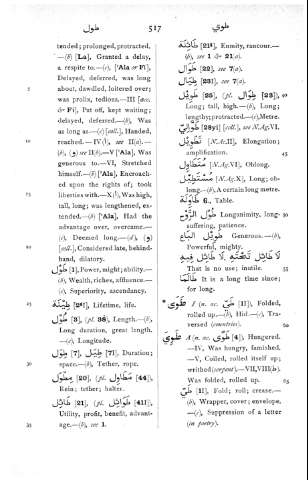 طول
517
طوي
tended; prolonged, protracted,
—(b) [La], Granted a delay,
a respite to.—(c), ['Ala or Fi],
Delayed, deferred, was long
about, dawdled, loitered over;
was prolix, tedious.—III [acc.
& Fi], Put off, kept waiting;
delayed, deferred.—(b), Was
as long as—(c) [coll.], Handed,
reached.—IV (١), see II(a).—
(b), (و) see II(b).—V ['Ala], Was
generous to.—VI, Stretched
himself.—(b) ['Ala], Encroach-
ed upon the rights of; took
liberties with.—X (١), Was high,
tall, long; was lengthened, ex-
tended.—(b) ['Ala], Had the
advantage over, overcame.—
(c), Deemed long.—(d), (و)
Considered late, behind-
hand, dilatory.
طَوْل [1], Power, might; ability.—
(b), Wealth, riches, affluence.—
(c), Superiority, ascendancy.
طِيْلَة Lifetime, life.
طُوْل [3], (pl. 38), Length.—(b),
Long duration, great length.
—(c), Longitude.
طِوَل [7], طِيَل [7], Duration;
space.—(b), Tether, rope.
مِطْوَل [20], (pl. مَطَاوِل [44]),
Rein; tether; halter.
طَائِل [21], (pl. طَوَائِل [41]),
Utility, profit, benefit, advant-
age.—(b), see 1.
طَائِلَة Enmity, rancour.—
(b), see 1 & 21(a).
طَوَال [22], see 7(a).
طِيَال [23], see 7(a).
طَوِيْل [25], (pl. طِوَال [23]),
Long; tall, high.—(b), Long;
lengthy; protracted.—(c), Metre.
[coll.], see N.Ag. VI.
تَطْوِيْل [N.Ac. II], Elongation;
amplification.
مُتَطَاوِل [N.Ag. VI], Oblong.
مُسْتَطِيْل [N.Ag. X], Long; ob-
long.—(b), A certain long metre.
طَاوِلَة 6., Table.
طُوْل الرُّوْح Longanimity, long-
suffering, patience.
طَوِيْل البَاع Generous.—(b),
Powerful, mighty.
لَا طَائِل تَحْتَهُ لَا طَائِل فِيهِ
That is no use; inutile.
طَالَمَا It is a long time since;
for long.
طَوَى I (n. ac. طَيّ [1]), Folded,
rolled up.—(b), Hid.—(c), Tra-
versed (countries).
طَوِيَ A (n. ac. طَوًى [4]), Hungered.
—IV, Was hungry, famished.
—V, Coiled, rolled itself up;
writhed (serpent).—VII, VIII(is),
Was folded, rolled up.
طَيّ [1], Fold; roll; crease.—
(b), Wrapper, cover; envelope.
—(c), Suppression of a letter
(in poetry).